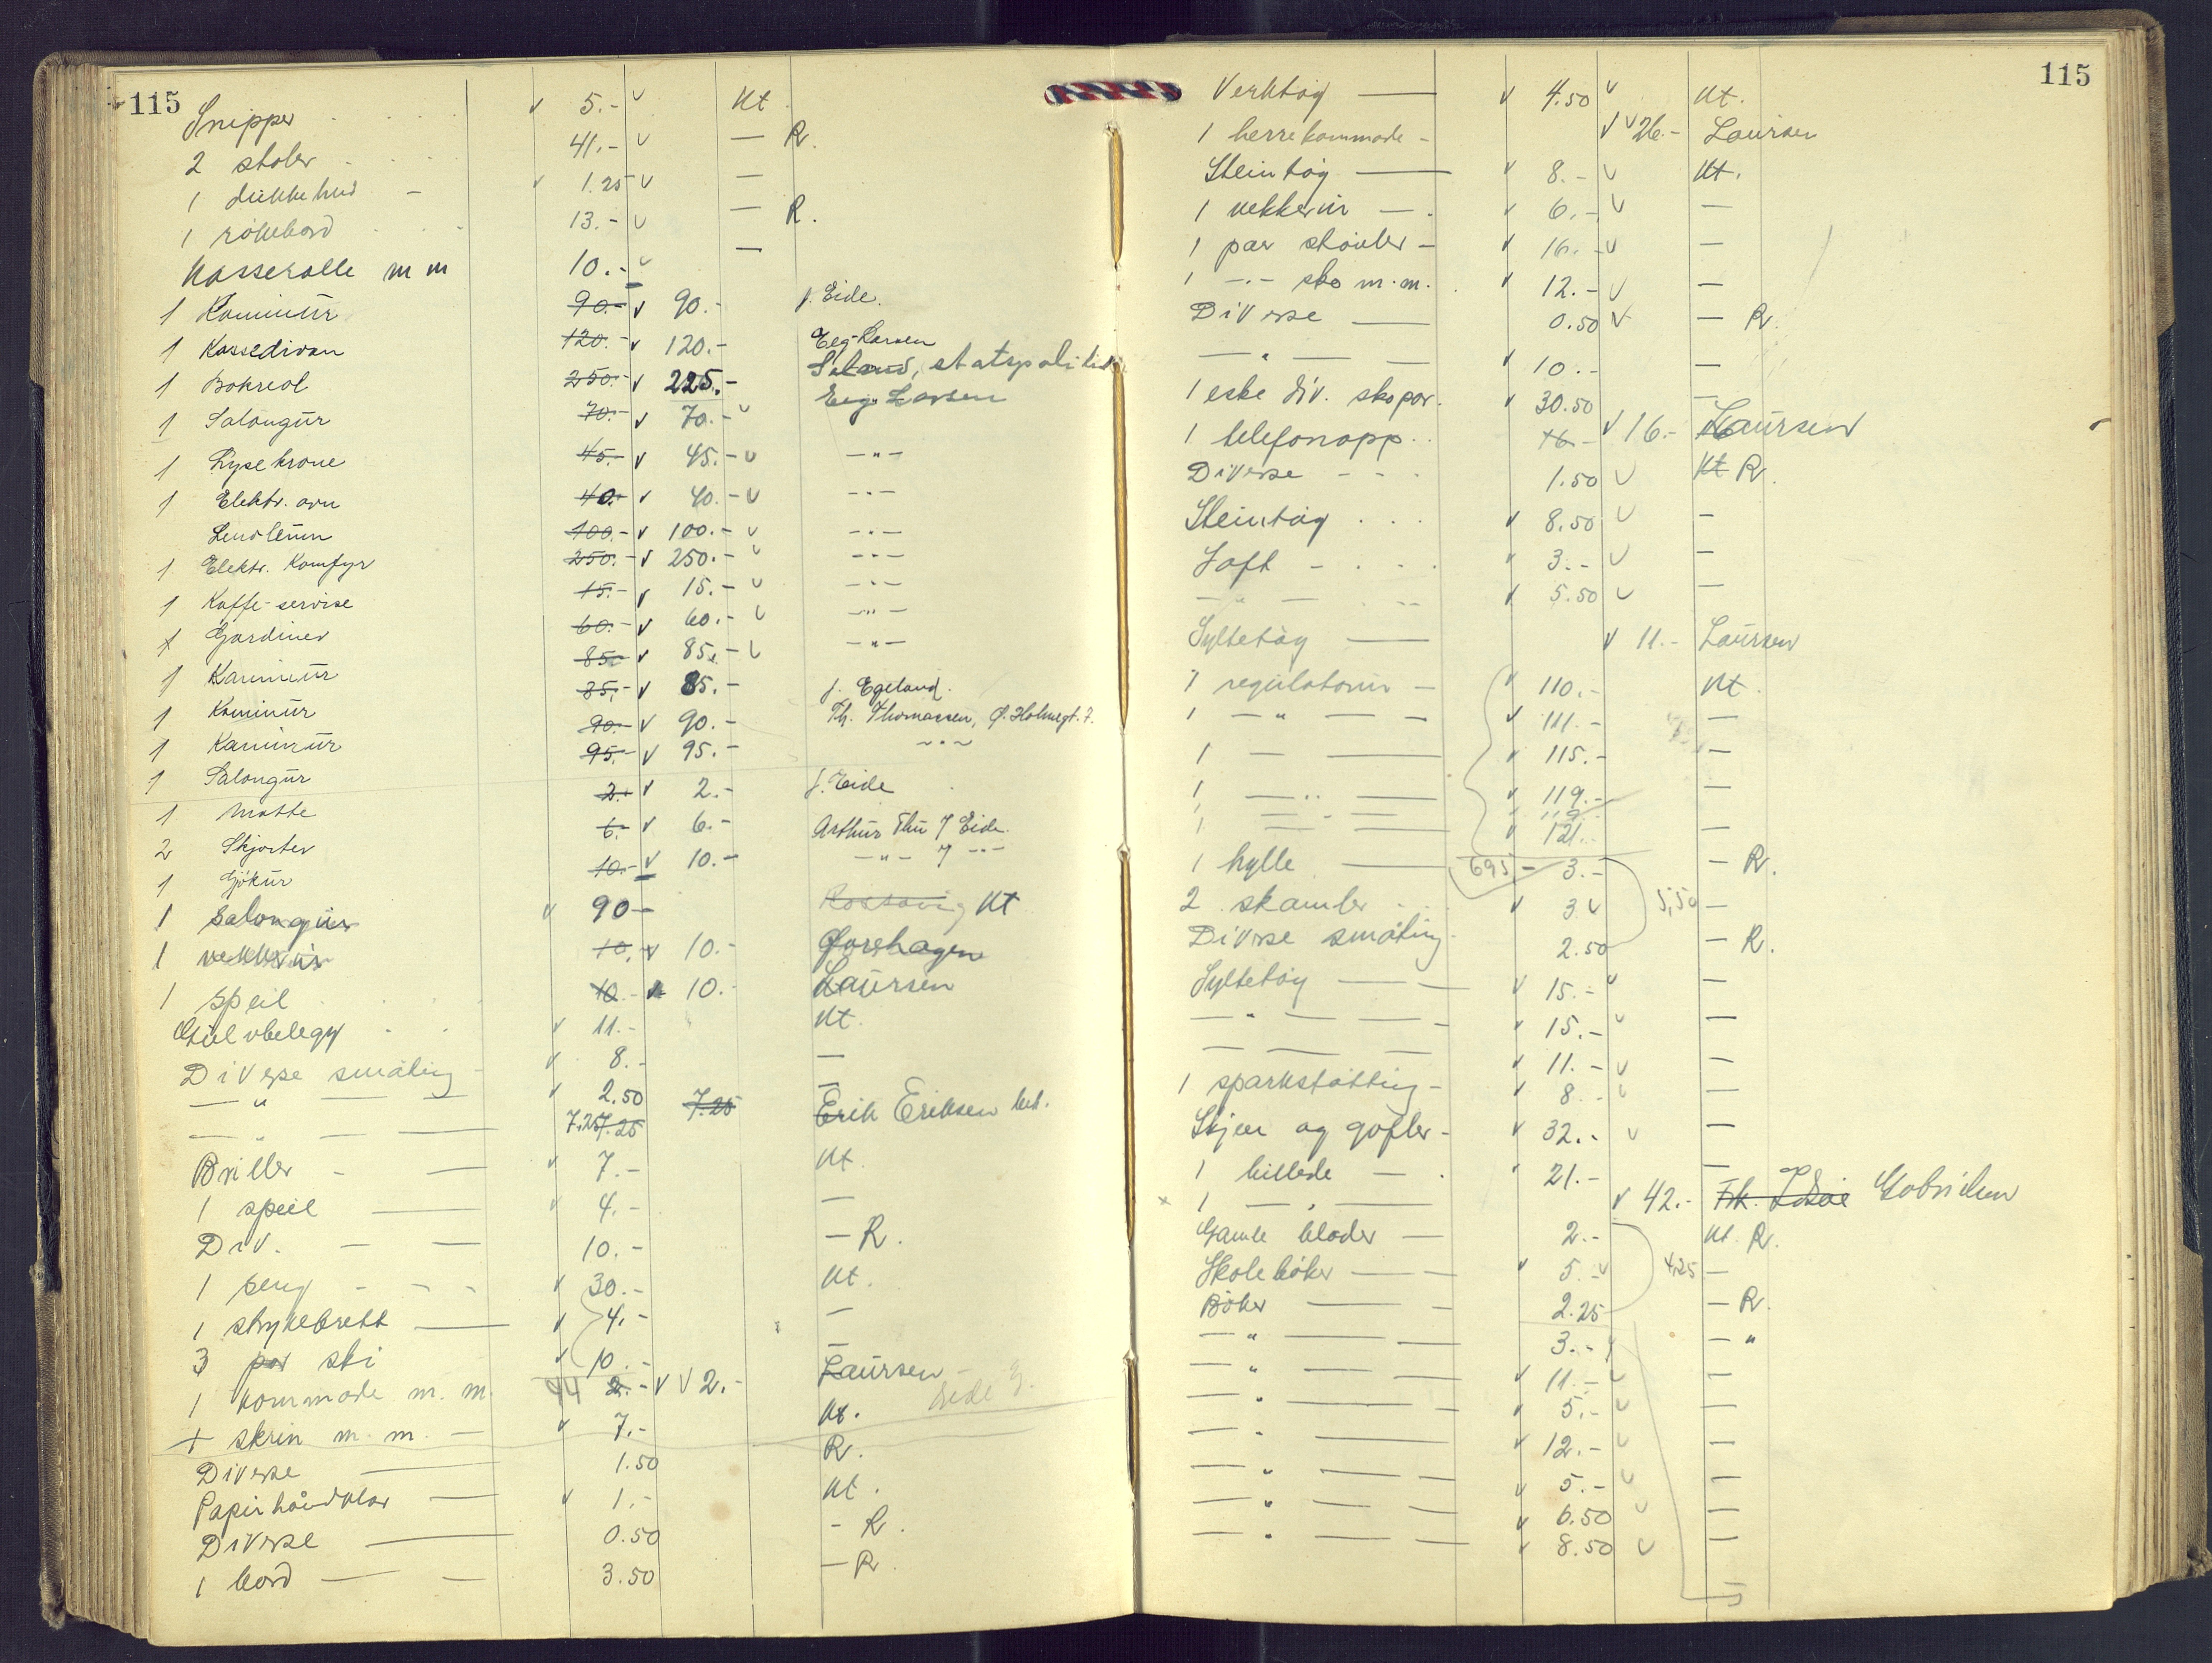 115
Snipper 5.- Kt.
2 stoler 41.- — R.
1 dukkehus - 1.25 —
1 rökebord 13.- — R.
Kasserolle m m 10.- —
1 Kaminur 90.- 90.- f. Eide.
1 Kassedivan 120.- 120.- Eeg-Larsen
1 Bokreol 250.- 225.- statspolitiet
1 Salongur 70.- 70.- Eeg Larsen
1 Lysekrone 45.- 45.- -"-
1 Elektr. ovn 40.- 40.- -"-
Linoleum 100.- 100.- -"-
1 Elektr. Komfyr 250.- 250.- -"-
1 Kaffe-servise 15.- 15.- -"-
1 Gardiner 60.- 60.- -"-
1 Kaminur 85.- 85.- -"-
1 Kaminur 85.- 85.- f. Egeland.
1 Kaminur 90.- 90.- Th. Thomassen, Ø. Holmegt. 7.
1 Salongur 95.- 95.- -"-
1 Matte 2.- 2.- f. Eide
2 Skjorter 6.- 6.- Arthur Thu f Eide.
1 Gjökur 10.- 10.- -"- f -"-
1 Salongur 90- Kt
1 vekkerur 10.- 10.- Forshagen
1 speil 10.- 10.- Laursen
Gulvbelegg 11.- Kt.
Diverse småting - 8.- —
— " — 2.50 —
— " — — 7.25 7.25 7.25 Erik Eriksen bet.
Briller - — 7.- Kt.
1 speil — 4.- —
Div. — — 10.- — R.
1 seng - - - 30.- Kt.
1 strykebrett — 4.- —
3 par ski 10.- —
1 kommode m. m. 44 2.- 2.- Laursen
1 skrin m. m. — 7.- Kt.
Diverse — 1.50 R.
Papirhåndklær — 1.- Kt.
Diverse — 0.50 - R.
1 bord — — 3.50 — R.
115
Verktøy — 4.50 Kt.
1 herrekommode - 26.- Laursen
Steintøy — 8.- Kt.
1 vekkerur — . 6.- —
1 par støvler - 16.- —
1 -"- sko m.m. 12.- —
Diverse — 0.50 — R.
— " — — 10.- —
1 eske div. skopar. 30.50 —
1 telefonapp. 16.- 16.- Laursen
Diverse - - - 1.50 Kt R.
Steintøy . . . 8.50 —
Saft - . . . 3.- —
— " — 5.50 —
Syltetøy — 11.- Laursen
1 regulatorur — 110.- Kt.
1 — " — — 111.- —
1 — — 115.- —
1 — " — 119.- —
1 — — 121.- —
1 hylle — 695 - 3.- — R.
2 skamler 3 5,50 —
Diverse småting. 2.50 — R.
Syltetøy — — 15.- —
— " — — - 15.- —
— — — 11.- —
1 sparkstøtting - 8.- —
Skjeer og gafler - 32.- —
1 billede — . 21.- —
1 — " — 42.- Gabrielsen
Gamle blader — 2.- Kt. R.
Skolebøker — — 5.- 4,25 —
Bøker — — 2.25 — R.
— " — — 3.- — "
— " — — 11.- —
— " — — 5.- —
— " — — 12.- —
— " — — 5.- —
— " — — 6.50 —
— " — — 8.50 —